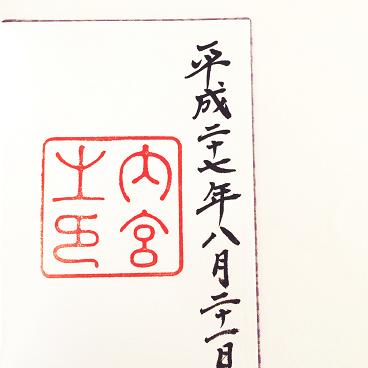 平成二十七年八月二十一日
内宮
之印